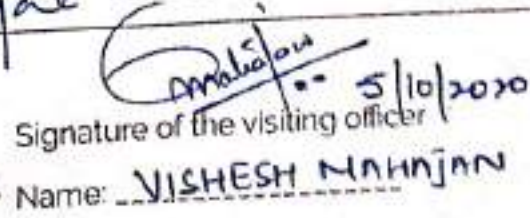 Mahajan
5/10/2020
Signature of the visiting officer
Name: VISHESH MAHAJAN